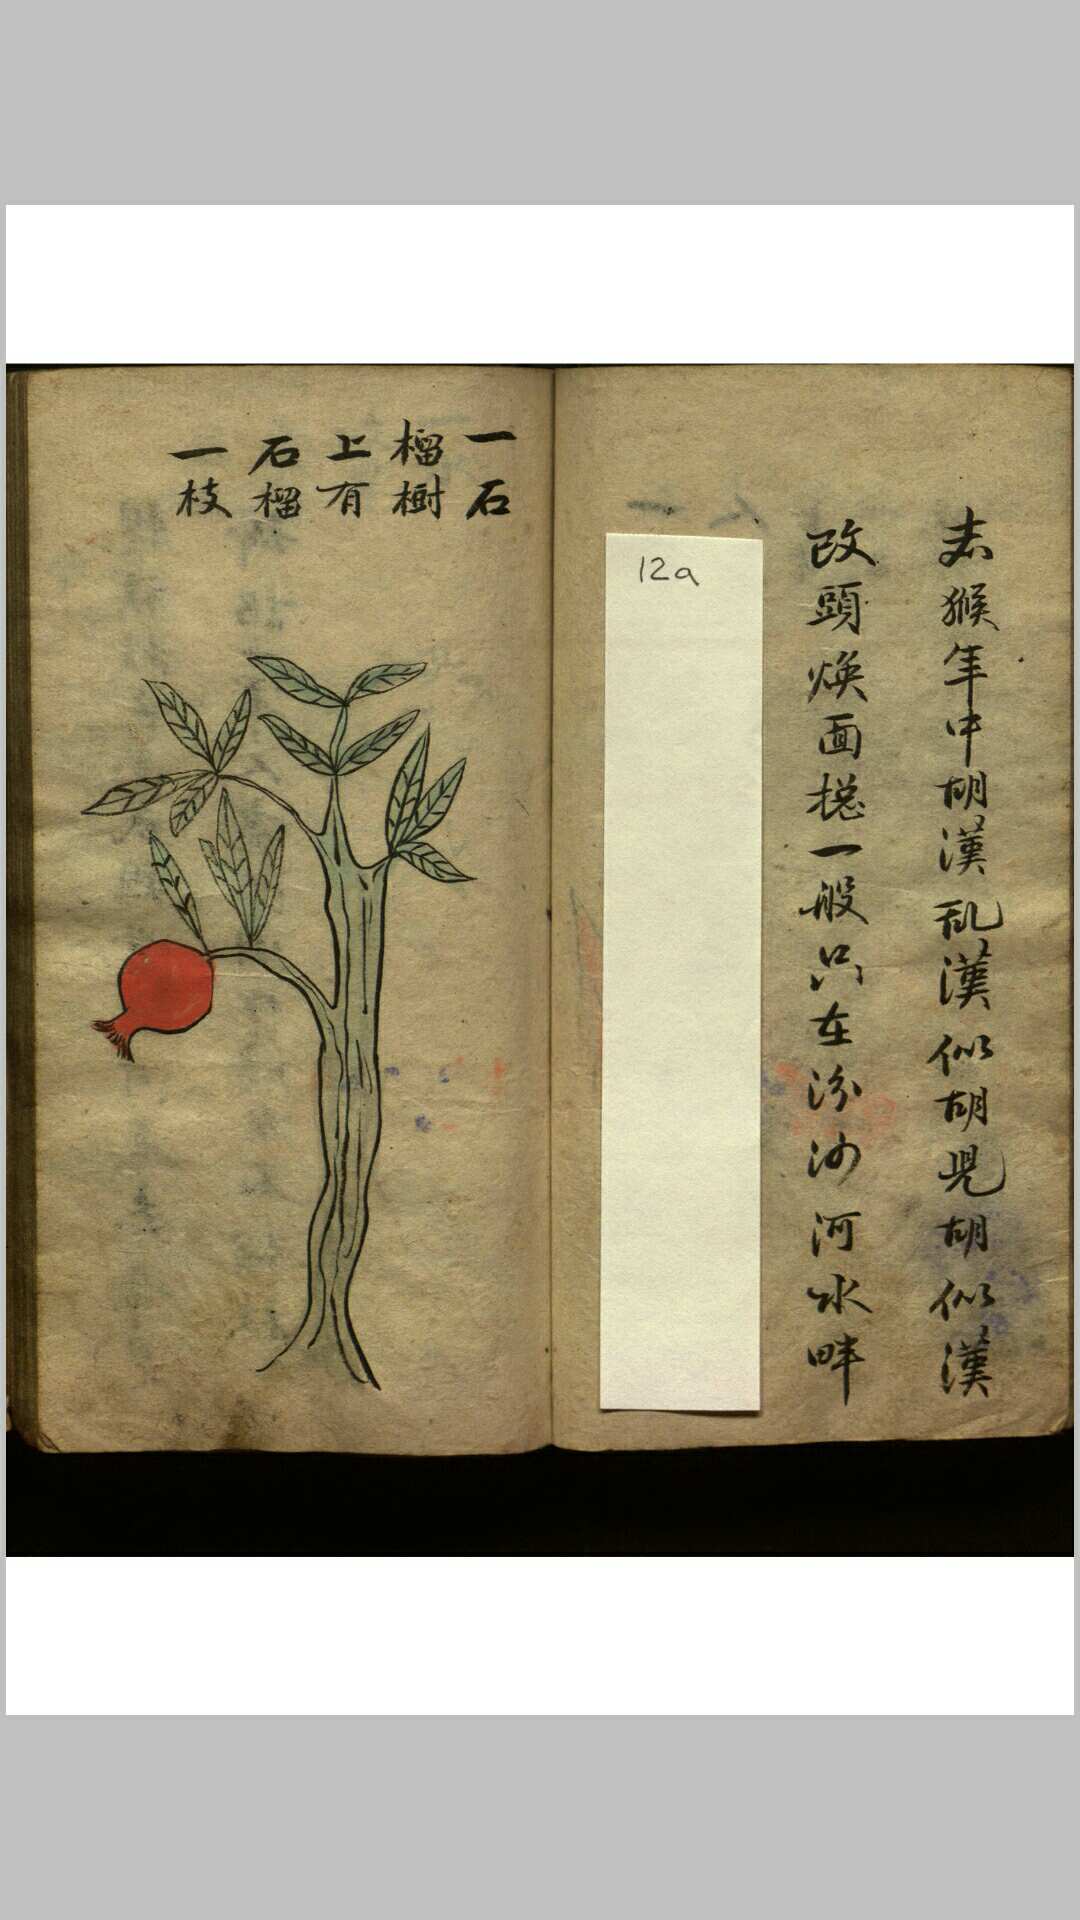 赤猴年中胡漢乱漢似胡兒胡似漢
改頭煥面揔一般只在汾沙河水畔
12a
一石
榴樹
上有
石榴
一枝